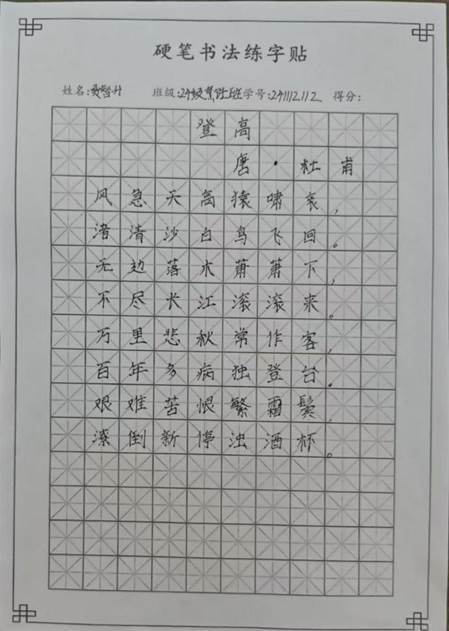 硬笔书法练字贴
姓名: 班级: 学号:241112112 得分:
登高
唐·杜甫
风急天高猿啸哀,
渚清沙白鸟飞回。
无边落木萧萧下,
不尽长江滚滚来。
万里悲秋常作客,
百年多病独登台。
艰难苦恨繁霜鬓,
潦倒新停浊酒杯。